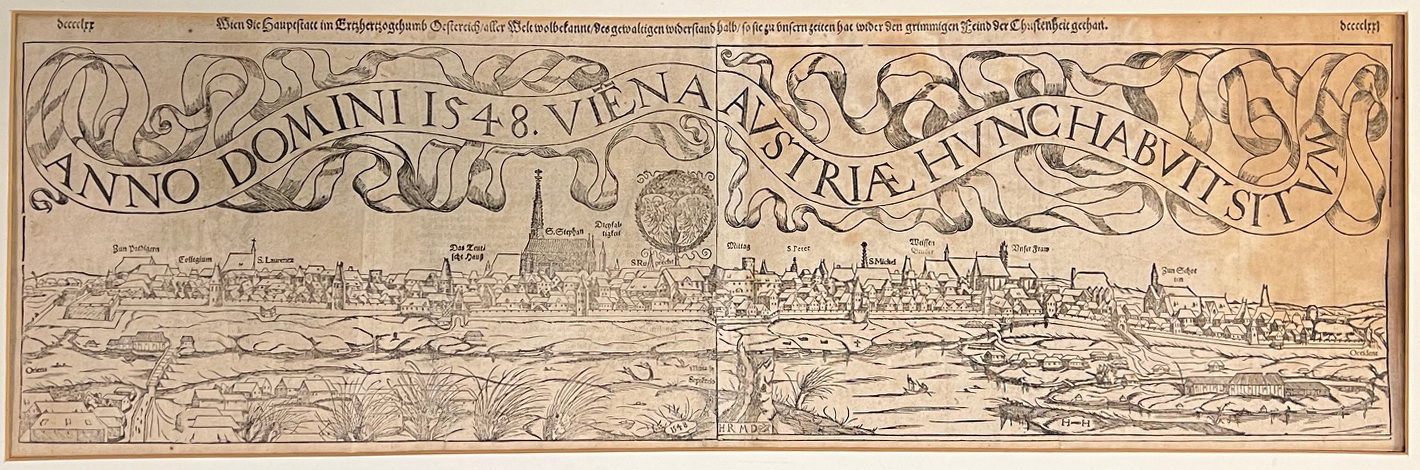 dcccclxx
Wien die Hauptstatt im Ertzhertzogthumb Oestereich/aller Welt wolbekannt/des gewaltigen widerstand halb/so sie zu vnsern zeiten hat wider den grimmigen Feind der Christenheit gethan.
dcccclxxj
ANNO DOMINI 1548. VIĒNA AVSTRIÆ HVNC HABVIT SITVM
Zun Predigern
Collegium
S. Laurentz
Das Teut
sche Hauß
S. Stephan
Dreyfal-
tigkeit
S. Ruprecht
Mittag
S. Peter
S. Michel
Weissen
Brüder
Vnser Fraw
Zun Schot
ten
Oriens
Occident
Septentrio
1548
HRMD
H-H